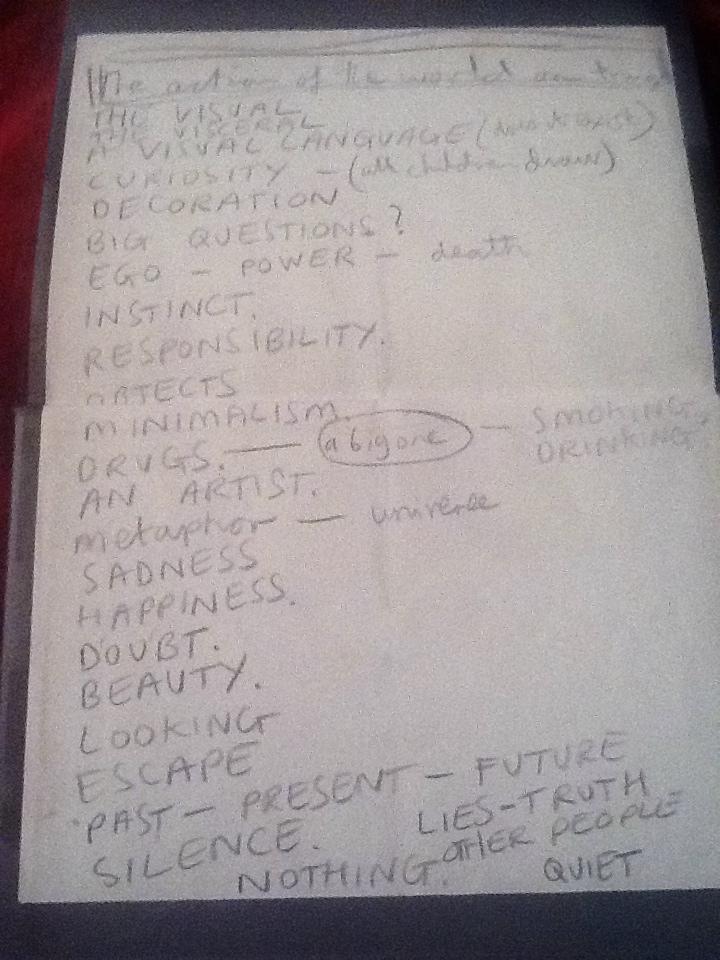 The action of the world on
THE VISUAL
THE VISCERAL
A VISUAL LANGUAGE (exist)
CURIOSITY - (all children draw)
DECORATION
BIG QUESTIONS?
EGO - POWER - death
INSTINCT.
RESPONSIBILITY.
OBJECTS
MINIMALISM.
DRUGS. — a big one — SMOKING,
DRINKING
AN ARTIST.
metaphor — universe
SADNESS
HAPPINESS.
DOUBT.
BEAUTY.
LOOKING
ESCAPE
PAST - PRESENT - FUTURE
SILENCE. LIES-TRUTH
OTHER PEOPLE
NOTHING. QUIET